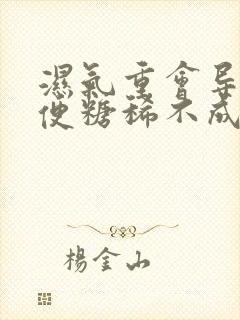 濕氣重會导
便糖稀不成
楊金山